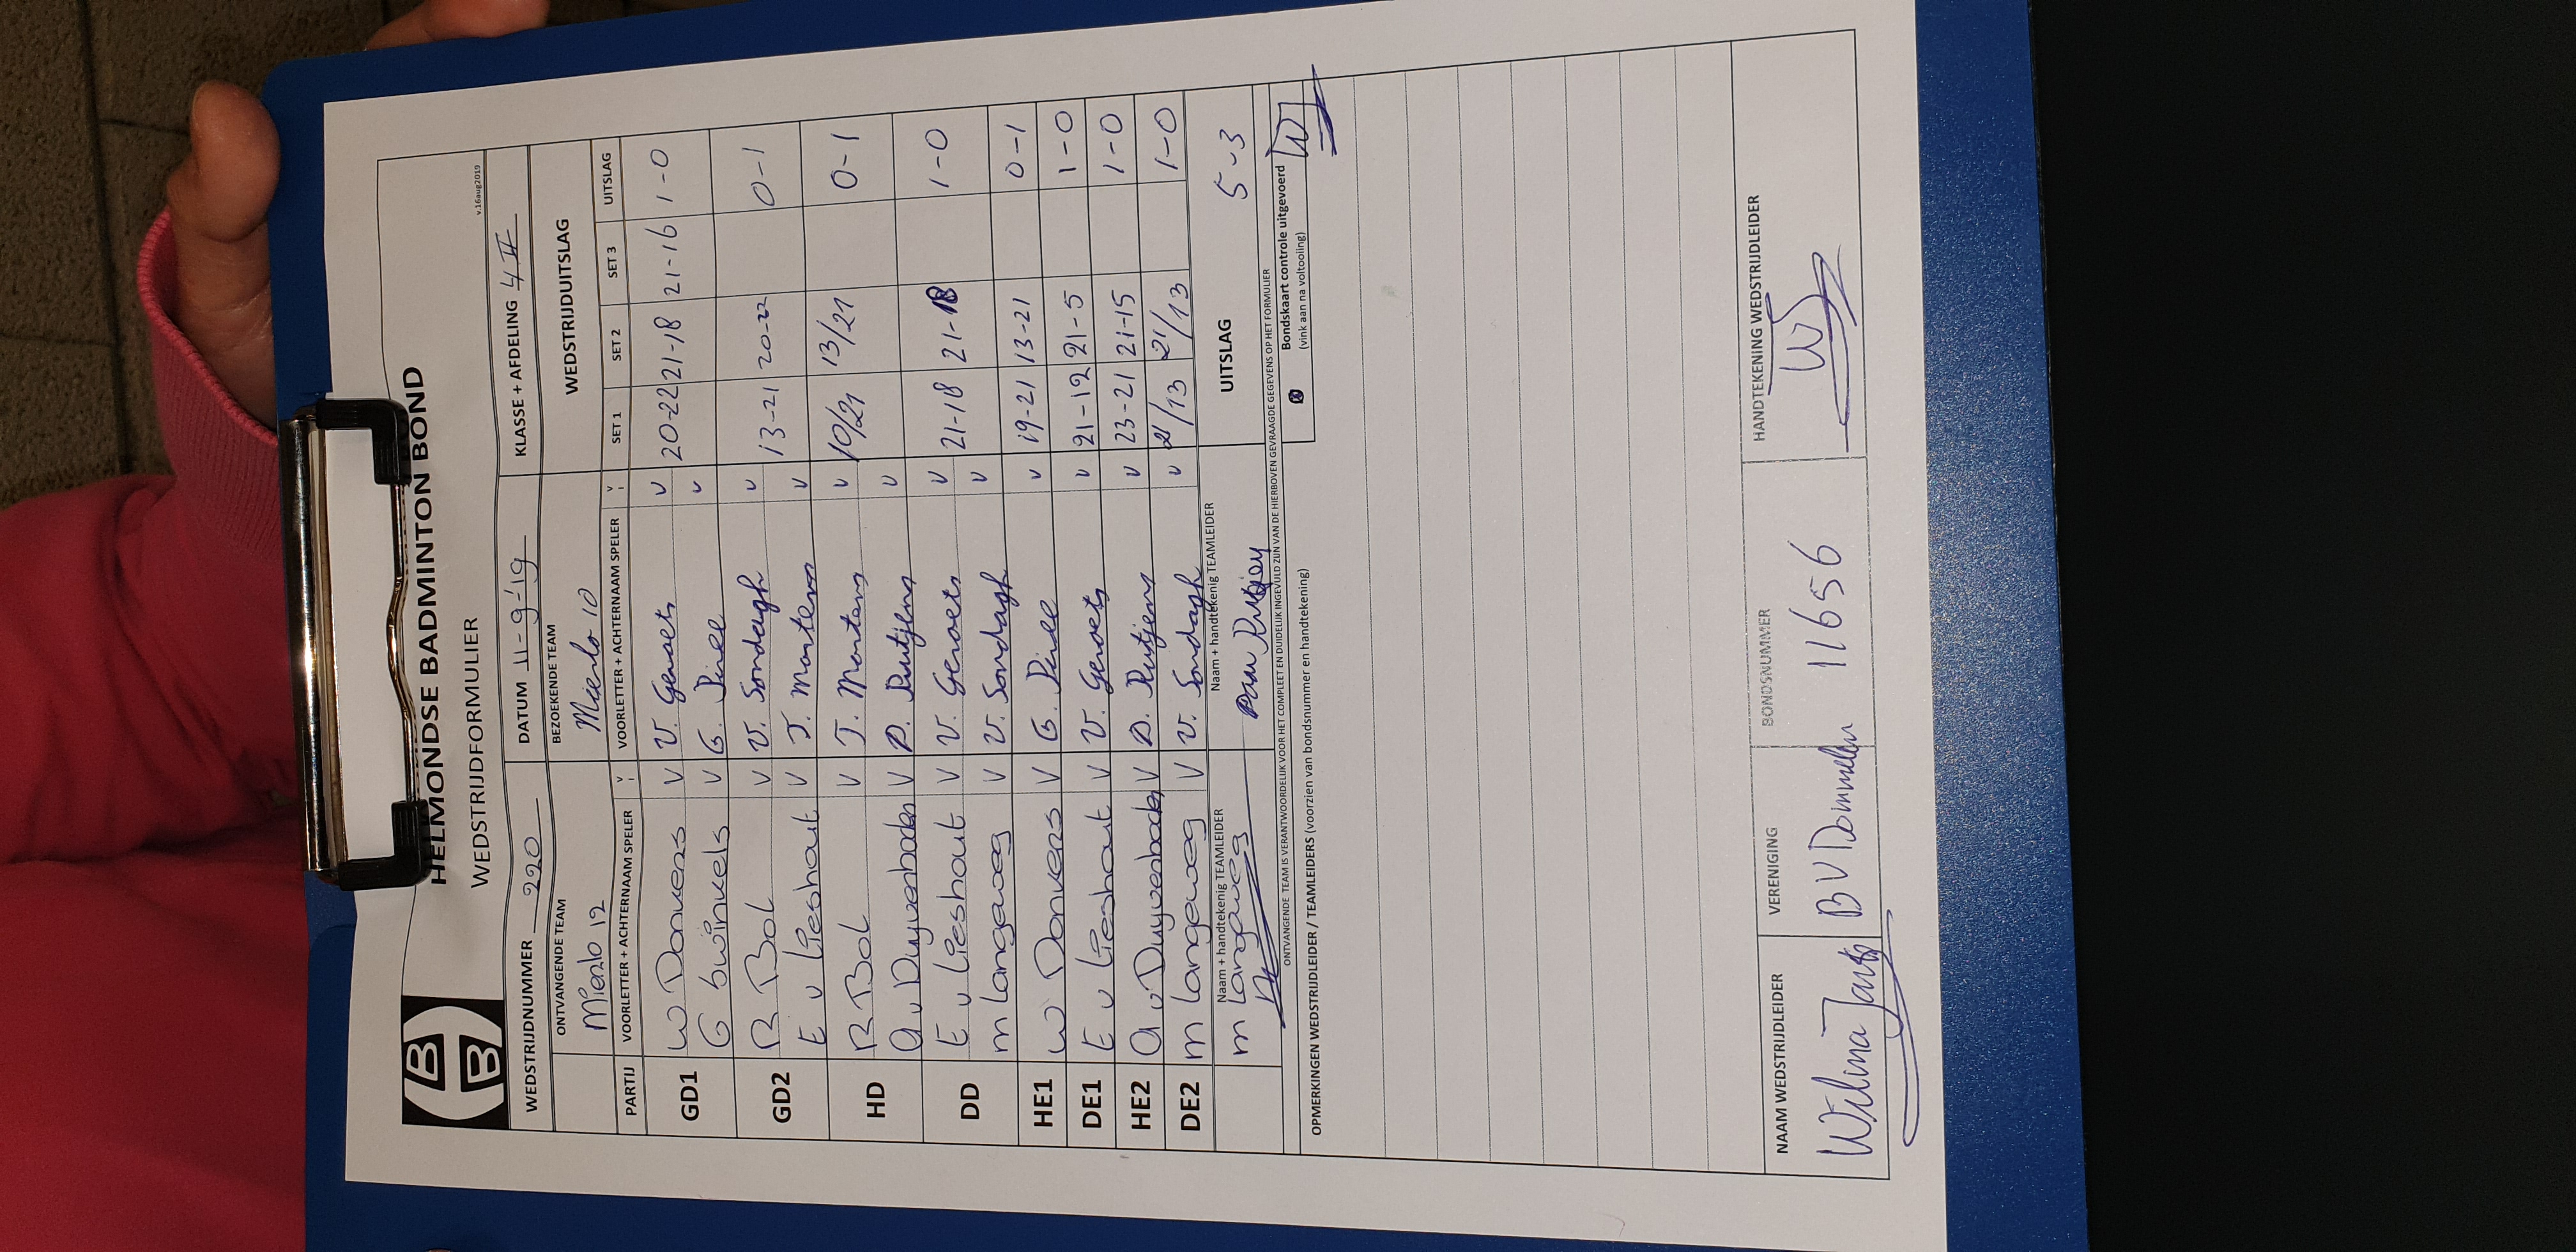 HB
B
HELMONDSE BADMINTON BOND
WEDSTRIJDFORMULIER
v.16aug2019
WEDSTRIJDNUMMER 220 DATUM 11-9-'19 KLASSE + AFDELING 4 II
ONTVANGENDE TEAM BEZOEKENDE TEAM WEDSTRIJDUITSLAG
Mierlo 12 Mierlo 10
PARTIJ VOORLETTER + ACHTERNAAM SPELER V VOORLETTER + ACHTERNAAM SPELER V SET 1 SET 2 SET 3 UITSLAG
GD1 W Donkers V V. Geraets v 20-22 21-18 21-16 1-0
G Swinkels V G. Pinee v
GD2 R Bol V V. Sondagh v 13-21 20-22 0-1
E v Lieshout V J. Martens v
HD R Bol V J. Martens v 10/21 13/21 0-1
A v Duyvenboden V D. Rutjens v
DD E v Lieshout V V. Geraets v 21-18 21-18 1-0
M Langeweg V V. Sondagh v
HE1 W Donkers V G. Pinee v 19-21 13-21 0-1
DE1 E v Lieshout V V. Geraets v 21-12 21-5 1-0
HE2 A v Duyvenboden V D. Rutjens v 23-21 21-15 1-0
DE2 M Langeweg V V. Sondagh v 21/13 21/13 1-0
Naam + handtekenig TEAMLEIDER Naam + handtekenig TEAMLEIDER UITSLAG 5-3
M Langeweg
ONTVANGENDE TEAM IS VERANTWOORDELIJK VOOR HET COMPLEET EN DUIDELIJK INGEVULD ZIJN VAN DE HIERBOVEN GEVRAAGDE GEGEVENS OP HET FORMULIER
Bondskaart controle uitgevoerd
(vink aan na voltooiing)
OPMERKINGEN WEDSTRIJDLEIDER / TEAMLEIDERS (voorzien van bondsnummer en handtekening)
NAAM WEDSTRIJDLEIDER VERENIGING BONDSNUMMER HANDTEKENING WEDSTRIJDLEIDER
Wilma BV Dommelen 11656